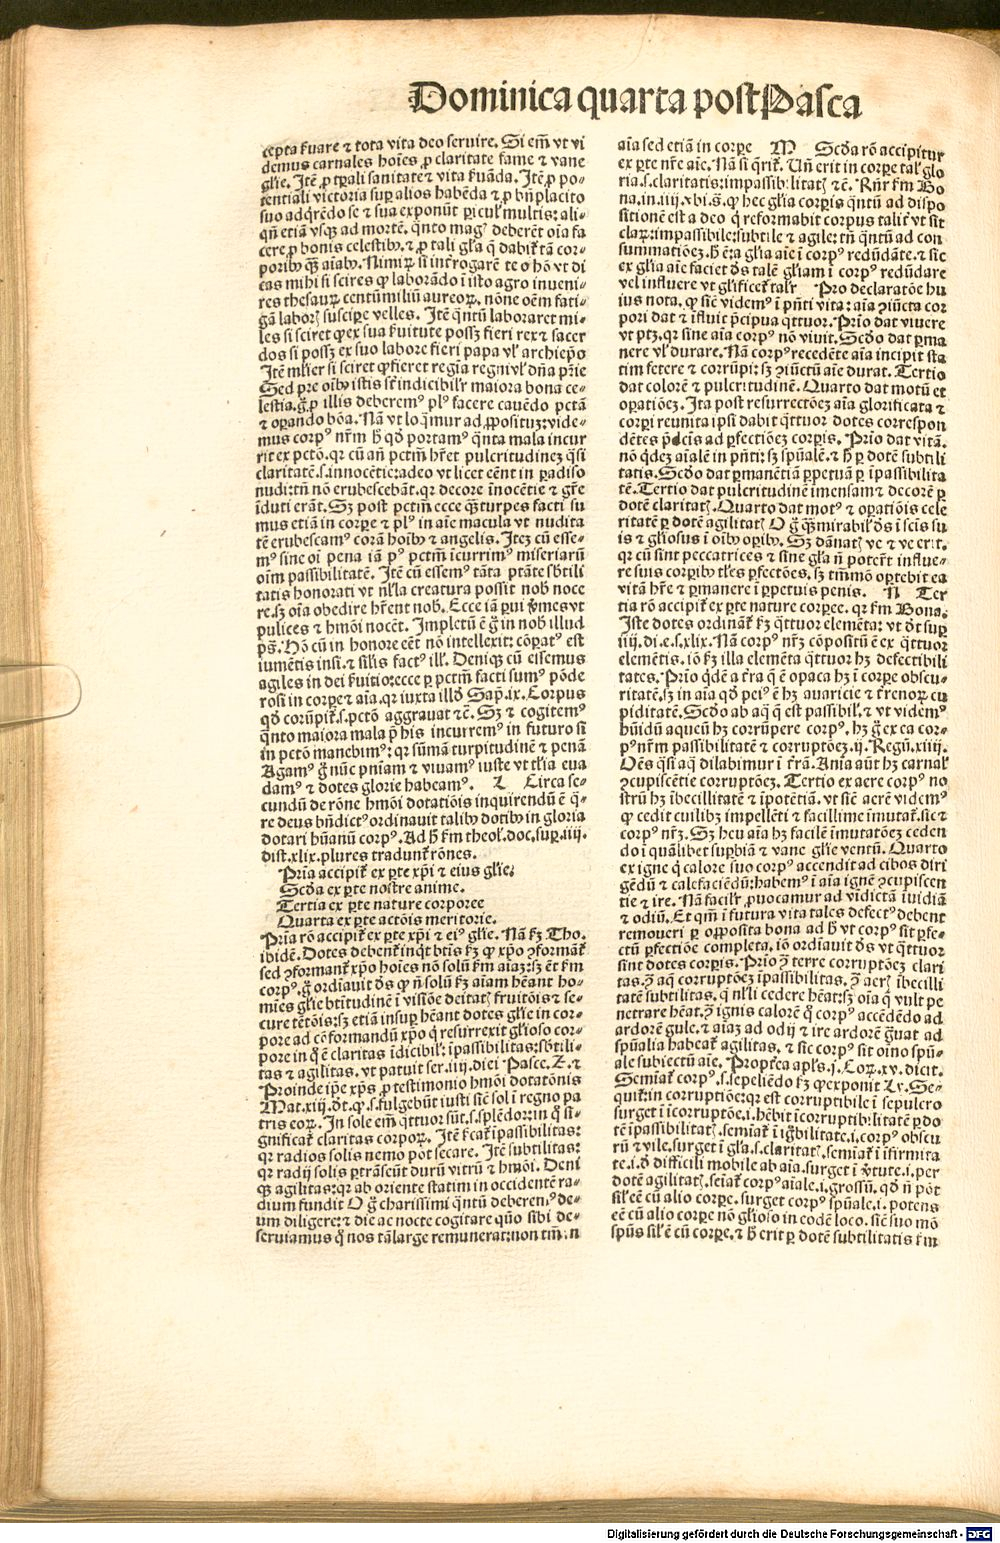 Dominica quarta post Pasca
cepta ẜuare ⁊ tota vita deo seruire. Si em̄ vt vi
demus carnales hoīes ꝓ claritate fame ⁊ vane
gl̄ie. Itē ꝓ tꝑali sanitate ⁊ vita ẜuāda. Itē ꝓ po⸗
tentiali victoria suꝑ alios habēda ⁊ ꝓ bn̄placito
suo adq̄rēdo se ⁊ sua exponūt ꝑicul̓ multis: ali⸗
qn̄ etiā vsqꝫ ad mortē. q̄nto magꝭ deberēt oīa fa
cere ꝓ bonis celestibꝰ. ⁊ ꝓ tali gl̄ia q̄ dabit̄ tā cor⸗
poribꝰ qꝫ aīabꝰ. Nimiꝝ si int̄rogarē te o hō vt di
cas mihi si scires ꝙ laborādo ī isto agro inueni⸗
res thesauꝝ centūmiliū aureoꝝ. nōne oēm fati⸗
gā laborꝭ suscipe velles. Itē q̄ntū laboraret mi⸗
les si sciret ꝙ ex sua ẜuitute possꝫ fieri rex ⁊ sacer
dos si possꝫ ex suo labore fieri papa vl̓ archiep̄o
Itē ml̓ier si sciret ꝙ fieret regīa regni vl̓ dn̄a pr̄ie
Sed pre oībꝰ istis sr̄t indicibil̓r maiora bona ce⸗
lestia. g̊ ꝓ illis deberemꝰ plꝰ facere cauēdo pctā
⁊ oꝑando bōa. Nā vt loq̄mur ad ꝓpositū: vide⸗
mus corpꝰ nr̄m ħ qd̓ portamꝰ q̄nta mala incur
rit ex pctō. qꝛ cū añ pctm̄ hr̄et pulcritudinez q̄si
claritatē. s. innocētie: adeo vt licet cēnt in ꝑadiso
nudi: tn̄ nō erubescebāt. qꝛ decore īnocētie ⁊ gr̄e
īduti erāt. Sꝫ post pctm̄ ecce qꝫ turpes facti su
mus etiā in corꝑe ⁊ plꝰ in aīe macula vt nudita
tē erubescamꝰ corā hoībꝰ ⁊ angelis. Itez cū esse⸗
mꝰ sine oī pena iā pꝰ pctm̄ īcurrimꝰ miseriarū
oīm passibilitatē. Itē cū essemꝰ tāta ptāte sb̄tili
tatis honorati vt nl̓la creatura possit nob̄ noce
re. sꝫ oīa obedire hr̄ent nob̄. Ecce iā ꝑui v̓mes vt
pulices ⁊ hmōi nocēt. Impletū ē g̊ in nob̄ illud
ps̄. Hō cū in honore eēt nō intellexit: cōꝑatꝰ est
iumētis insi. ⁊ sil̓is factꝰ ill̓. Deniqꝫ cū essemus
agiles in dei ẜuitio: ecce ꝑ pctm̄ facti sumꝰ pōde
rosi in corꝑe ⁊ aīa. qꝛ iuxta illd̓ Sap̄. ix. Corpus
qd̓ corūpit̄. s. pctō aggrauat ⁊c. Sꝫ ⁊ cogitemꝰ
q̄nto maiora mala p̄ his incurremꝰ in futuro si
in pctō manebimꝰ: qꝛ sūmā turpitudinē ⁊ penā
Agamꝰ g̊ nūc pn̄iam ⁊ viuamꝰ iuste vt tl̓ia eua
damꝰ ⁊ dotes glorie habeamꝰ. L Circa se⸗
cundū de rōne hmōi dotatiōis inquirendū ē q̄⸗
re deus bn̄dictꝰ ordinauit talibꝰ dotibꝰ in gloria
dotari hūanū corpꝰ. Ad ħ ẜm theol̓. doc. suꝑ. iiij.
dist. xlix. plures tradunt̄ rōnes.
Pria accipit̄ ex ꝑte xp̄i ⁊ eius gl̄ie.
Scd̓a ex ꝑte nostre anime.
Tertia ex ꝑte nature corporee
Quarta ex ꝑte actōis meritorie.
Pria rō accipit̄ ex ꝑte xp̄i ⁊ eiꝰ gl̄ie. Nā ẜꝫ Tho.
ibidē. Dotes debent̄ inq̓t btīs ẜꝫ ꝙ xp̄o ꝯformat̄
sed ꝯformant̄ xp̄o hoīes nō solū ẜm aīaz: sꝫ ēt ẜm
corpꝰ. g̊ ordīauit d̓s ꝙ ñ solū ẜꝫ aīam hēant ho⸗
mīes gl̄ie btītudinē ī visiōe deitatꝭ fruitōis ⁊ se⸗
cure tētōis: sꝫ etiā insuꝑ hēant dotes gl̄ie in cor⸗
pore ad cōformandū xp̄o q̓ resurrexit gl̓ioso cor⸗
pore in q̊ ē claritas īdicibil̓: īpassibilitas: sb̄tili⸗
tas ⁊ agilitas. vt patuit ẜer. iiij. diei Pasce. Z. ⁊
Proinde ip̄e xp̄s ꝓ testimonio hmōi dotatōnis
Mat. xiij. d̓t. ꝙ. s. fulgebūt iusti sic̄ sol ī regno pa
tris eoꝝ. In sole em̄ qttuor sūt. s. splēdor: in q̊ si⸗
gnificat̄ claritas corpoꝝ. Itē ẜcat̄ īpassibilitas:
qꝛ radios solis nemo pōt secare. Itē subtilitas:
qꝛ radij solis ꝑtrāseūt durū vitrū ⁊ hmōi. Deni
qꝫ agilitas: qꝛ ab oriente statim in occidentē ra⸗
dium fundit O g̊ charissimi q̄ntū deberemꝰ de⸗
um diligere: ⁊ die ac nocte cogitare quō sibi de⸗
seruiamus q̓ nos tā large remunerat: non tm̄ in
aīa sed etiā in corꝑe M Scd̓a rō accipitur
ex ꝑte nr̄e aīe. Nā si q̄rit̄. Un̄ erit in corꝑe tal̓ glo
ria. s. claritatis: impassibilitatꝭ ⁊c. Rn̄r ẜm Bo
na. in. iiij. vbi. s̄. ꝙ hec gl̓ia corꝑis q̄ntū ad dispo
sitionē est a deo q̓ reformabit corpus talit̓ vt sit
claꝝ: impassibile: subtile ⁊ agile: tn̄ q̄ntū ad con
summatiōez. ħ ē: a gl̓ia aīe ī corpꝰ redūdāte. ⁊ sic
ex gl̓ia aīe faciet d̓s talē gl̓iam ī corpꝰ redūdare
vel influere vt gl̓ificet̄ tal̓r Pro declaratōe hu
ius nota. ꝙ sic̄ videmꝰ ī pn̄ti vita: aīa ꝯiūcta cor
pori dat ⁊ īfluit p̄cipua qttuor. Prio dat viuere
vt ptꝫ. qꝛ sine aīa corpꝰ nō viuit. Scd̓o dat ꝑma
nere vl̓ durare. Nā corpꝰ recedēte aīa incipit sta
tim fetere ⁊ corrūpi: sꝫ ꝯiūctū aīe durat. Tertio
dat colorē ⁊ pulcritudinē. Quarto dat motū et
oꝑatiōez. Ita post resurrectōez aīa glorificata ⁊
corpi reunita ipsi dabit qttuor dotes correspon
dētes p̄dictis ad ꝑfectiōez corꝑis. Prio dat vitā.
nō q̓dez aīalē in pn̄ti: sꝫ spūalē. ⁊ ħ ꝑ dotē subtili
tatis. Scd̓o dat ꝑmanētiā ꝑpetuā ꝑ īpassibilita
tē. Tertio dat pulcritudinē imensam ⁊ decorē ꝑ
dotē claritatꝭ. Quarto dat motꝰ ⁊ oꝑatiōis cele
ritatē ꝑ dotē agilitatꝭ O g̊ qꝫ mirabil̓ d̓s ī scis su
is ⁊ gl̓iosus ī oībꝰ oꝑibꝰ. Sꝫ dānatꝭ ve ⁊ ve erit.
qꝛ cū sint peccatrices ⁊ sine gl̓ia ñ poter̄t influe⸗
re suis corꝑibꝰ tl̓es ꝑfectōes. sꝫ tm̄mō oꝑtebit ea
vitā hr̄e ⁊ ꝑmanere ī ꝑpetuis penis. N Ter
tia rō accipit̄ ex ꝑte nature corꝑee. qꝛ ẜm Bona.
Iste dotes ordinant̄ ẜꝫ qttuor elemēta: vt d̓t suꝑ
iiij. di. e. s. xlix. Nā corpꝰ nr̄ꝫ cōpositū ē ex qttuor
elementis. iō ẜꝫ illa elemēta qttuor hꝫ defectibili
tates. Prio q̓dē a t̄ra q̄ ē opaca hꝫ ī corꝑe obscu⸗
ritatē. sꝫ in aīa qd̓ peiꝰ ē hꝫ auaricie ⁊ t̄renoꝝ cu
piditatē. Scd̓o ab aq̄ q̄ est passibil̓. ⁊ vt videmꝰ
hūidū aqueū hꝫ corrūpere corpꝰ. hꝫ g̊ ex ea cor⸗
pꝰ nr̄m passibilitatē ⁊ corruptōez. ij. Regū. xiiij.
Oēs q̄si aq̄ dilabimur ī t̄rā. Anīa aūt hꝫ carnal̓
ꝯcupiscētie corruptōez. Tertio ex aere corpꝰ no
strū hꝫ ībecillitatē ⁊ īpotētiā. vt sic̄ aerē videmꝰ
ꝙ cedit cuilibꝫ impellēti ⁊ facillime īmutat̄. sic ⁊
corpꝰ nr̄ꝫ. Sꝫ heu aīa hꝫ facilē īmutatōez ceden
do ī quālibet suꝑbiā ⁊ vane gl̓ie ventū. Quarto
ex igne q̓ calore suo corpꝰ accendit ad cibos diri
gēdū ⁊ calefaciēdū: habemꝰ ī aīa ignē ꝯcupiscen
tie ⁊ ire. Nā facil̓r ꝓuocamur ad vidictā īuidiā
⁊ odiū. Et qm̄ ī futura vita tales defectꝰ debent
remoueri ꝑ oꝓposita bona ad ħ vt corpꝰ sit ꝑfe⸗
ctū ꝑfectiōe completa. iō ordīauit d̓s vt qttuor
sint dotes corꝑis. Prio ꝯ̄ terre corruptōez clari
tas. ꝯ̄ aq̄ corruptōez īpassibilitas. ꝯ̄ aerꝭ ībecilli
tatē subtilitas. q̄ nl̓li cedere hēat: sꝫ oīa q̄ vult pe
netrare hēat. ꝯ̄ ignis calorē q̓ corpꝰ accēdēdo ad
ardorē gule. ⁊ aīaz ad odij ⁊ ire ardorē g̊uat ad
spūalia habeat̄ agilitas. ⁊ sic corpꝰ sit oīno spū⸗
ale subiectū aīe. Propt̓ea apl̓s. j. Coꝝ. xv. dicit.
Semiat̄ corpꝰ. s. sepeliēdo ẜꝫ ꝙ exponit Ly. Se⸗
quit̄: in corruptiōe: qꝛ est corruptibile ī sepulcro
surget ī īcorruptōe. i. hēbit īcorruptibilitatē ꝑ do
tē īpassibilitatꝭ. semiat̄ ī ignobilitate. i. corpꝰ obscu
rū ⁊ vile. surget ī gl̓ia. s. claritatꝭ. semiat̄ ī īfirmita
te. i. d̓ difficili mobile ab aīa. surget ī v̓tute. i. per
dotē agilitatꝭ. seīat̄ corpꝰ aīale. i. grossū. qd̓ ñ pōt
sil̓ eē cū alio corꝑe. surget corpꝰ spūale. i. potens
eē cū alio corꝑe nō gl̓ioso in codē loco. sic̄ suo mō
spūs sil̓ ē cū corꝑe. ⁊ ħ erit ꝑ dotē subtilitatis ẜm
Digitalisierung gefördert durch die Deutsche Forschungsgemeinschaft - DFG